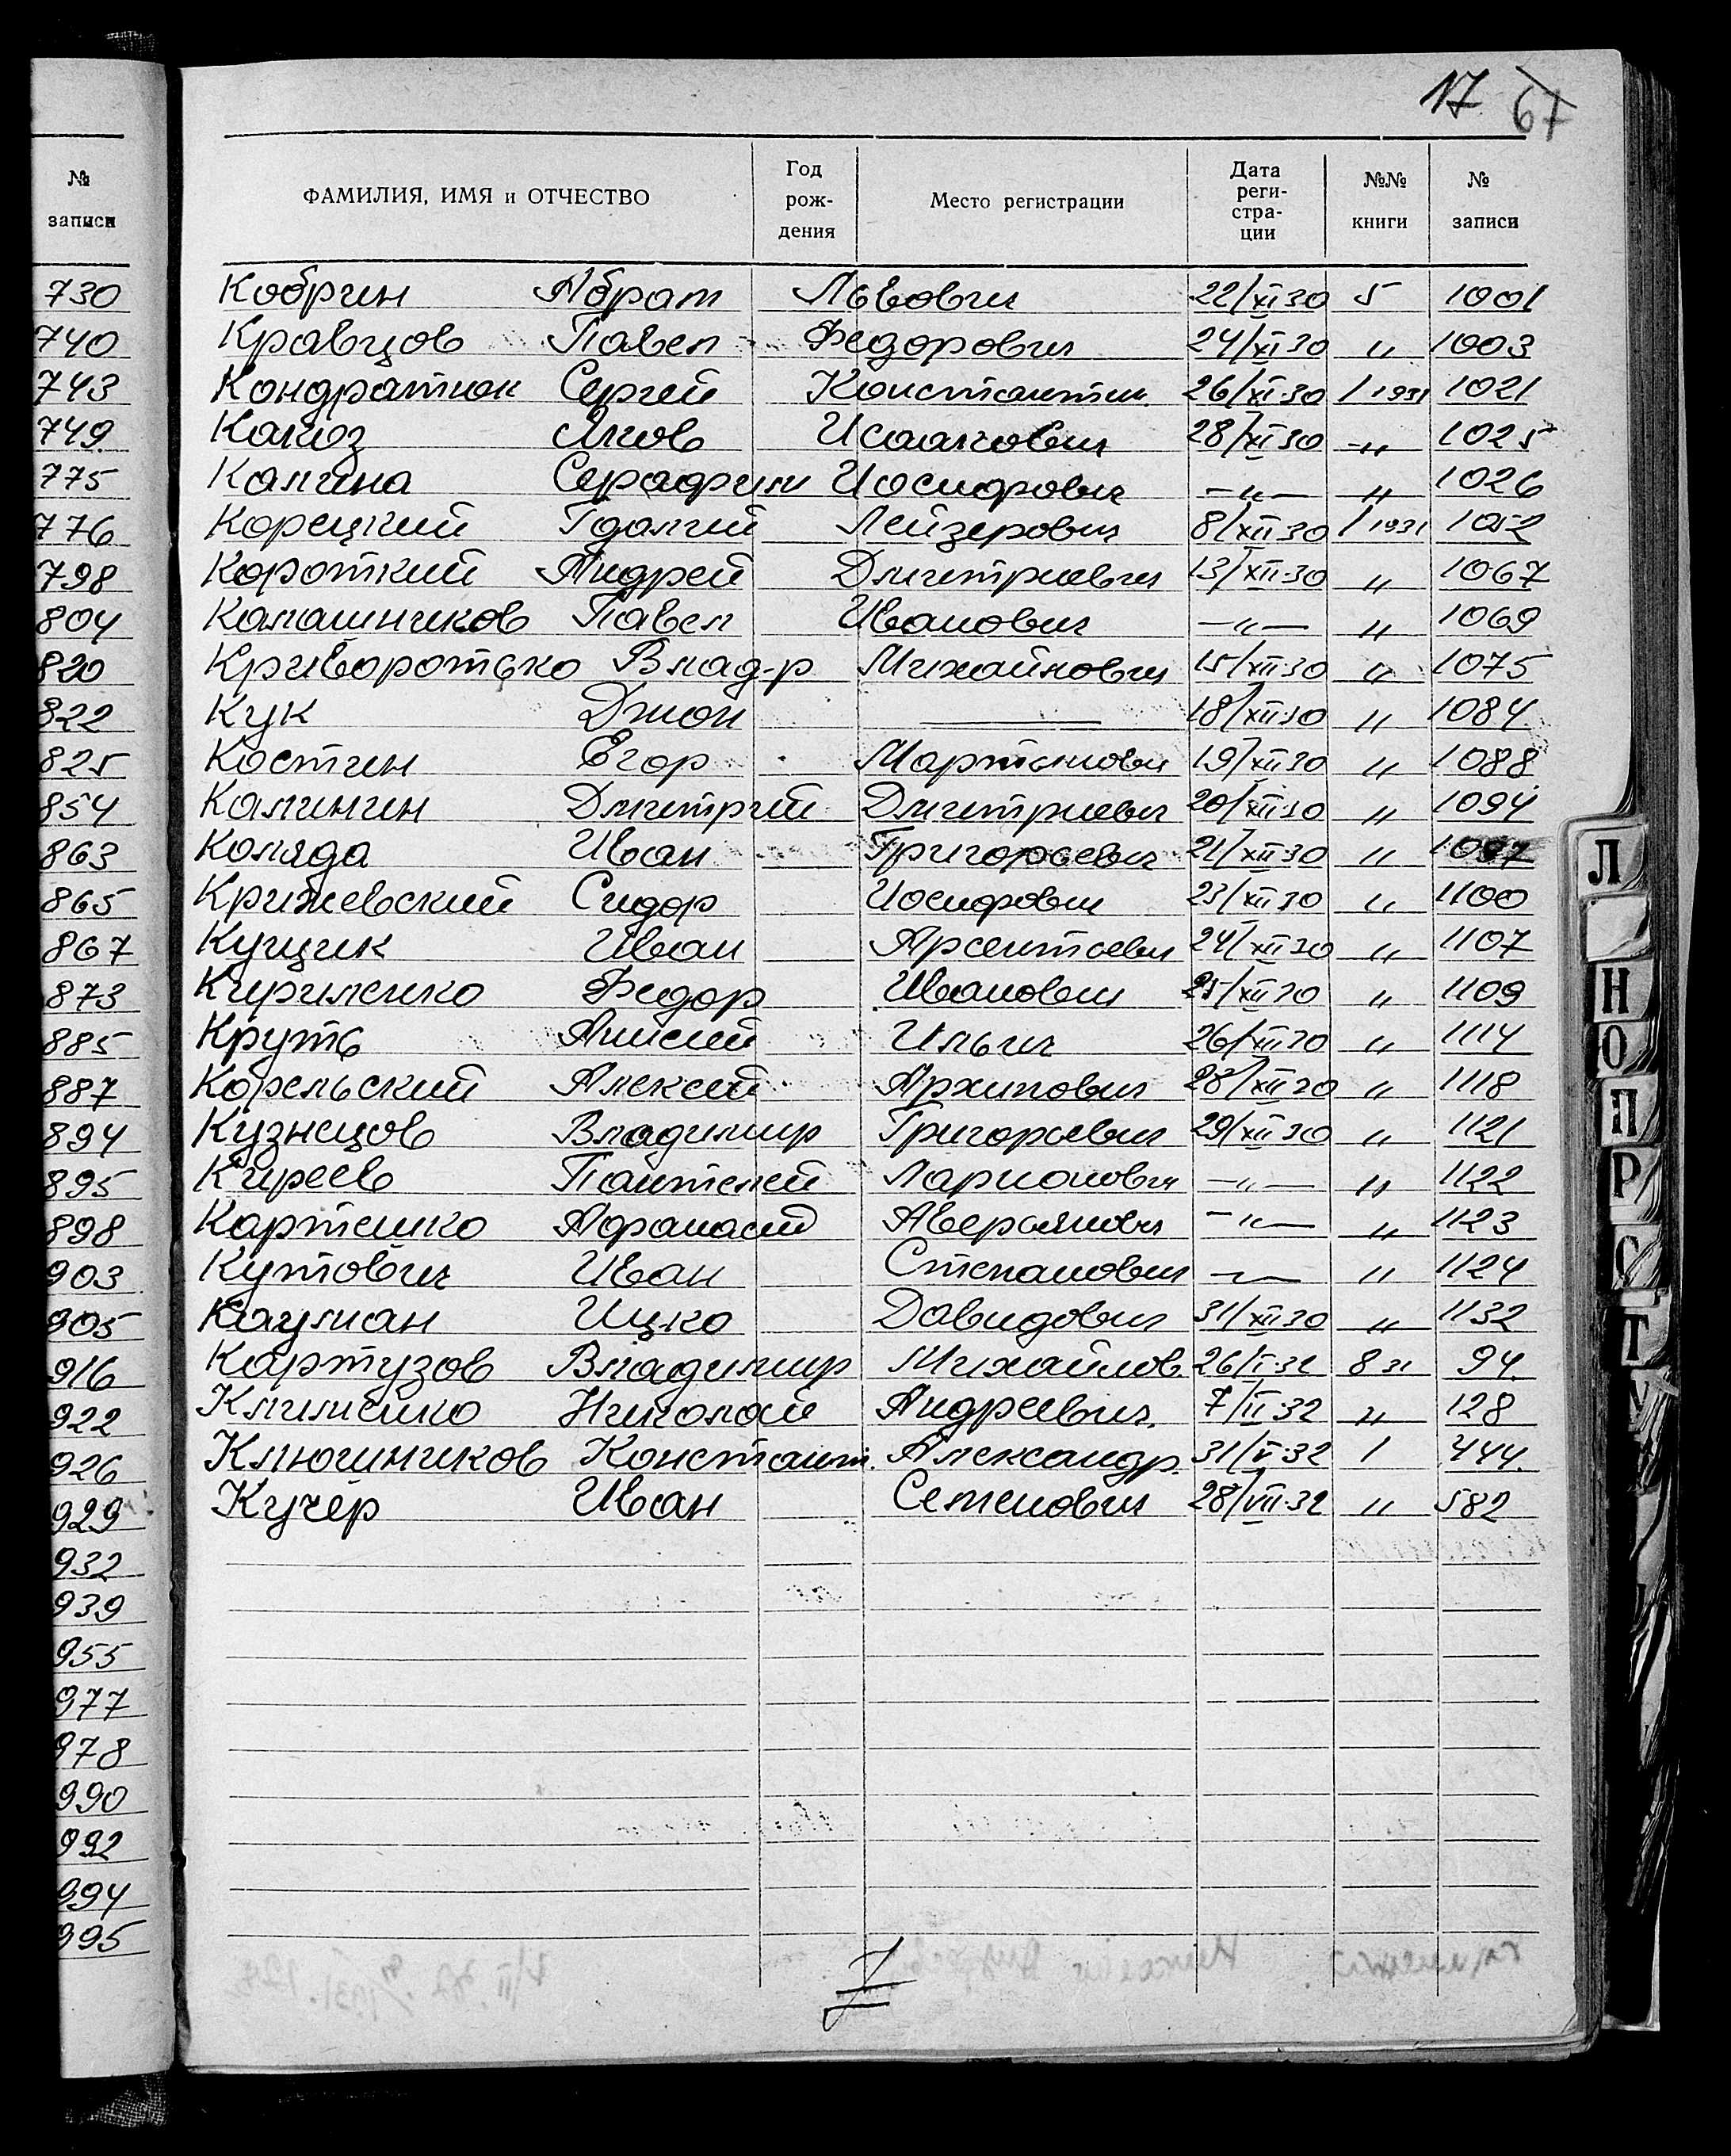 17 67
№ записи
ФАМИЛИЯ, ИМЯ и ОТЧЕСТВО Год рождения Место регистрации Дата регистрации №№ книги № записи
730 Кобрин Абрам Львович 22/XI 30 5 1001
740 Кравцов Павел Федорович 24/XI 30 " 1003
743 Кондратюк Сергей Константин. 26/XI 30 1 1931 1021
749 Яков Исаакович 28/XI 30 -"- 1025
775 Калина Серафим Иосифович -"- " 1026
776 Корецкий Гдалий Лейзерович 8/XII 30 1 1931 1052
798 Короткий Андрей Дмитриевич 13/XII 30 " 1067
804 Калашников Павел Иванович -"- " 1069
820 Криворотько Влад-р Михайлович 15/XII 30 " 1075
822 Кук Джон — 18/XII 30 " 1084
825 Костин Егор Мартынович 19/XII 30 " 1088
854 Калинин Дмитрий Дмитриевич 20/XII 30 " 1094
863 Коляда Иван Григорьевич 21/XII 30 " 1097
865 Крижевский Сидор Иосифович 23/XII 30 " 1100
867 Кущик Иван Арсентьевич 24/XII 30 " 1107
873 Кириленко Федор Иванович 25/XII 30 " 1109
885 Круть Анисий Ильич 26/XII 30 " 1114
887 Корельский Алексей Архипович 28/XII 30 " 1118
894 Кузнецов Владимир Григорьевич 29/XII 30 " 1121
895 Киреев Пантелей Ларионович -"- " 1122
898 Картешко Афанасий Аверьянович -"- " 1123
903 Кутович Иван Степанович -"- " 1124
905 Кауман Ицко Давидович 31/XII 30 " 1132
916 Картузов Владимир Михайлов. 26/I-32 8 31 94
922 Клименко Николай Андреевич 7/II-32 " 128
926 Ключников Констант. Александр. 31/V-32 1 444.
929 Кучер Иван Семенович 28/VII-32 " 582
932
939
955
977
978
990
992
994
995
Л
Н
О
П
Р
С
Т
У